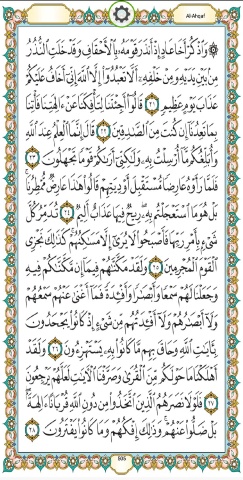 Al-Ahqaf
۞ وَٱذْكُرْ أَخَا عَادٍ إِذْ أَنذَرَ قَوْمَهُۥ بِٱلْأَحْقَافِ وَقَدْ خَلَتِ ٱلنُّذُرُ
مِنۢ بَيْنِ يَدَيْهِ وَمِنْ خَلْفِهِۦٓ أَلَّا تَعْبُدُوٓا۟ إِلَّا ٱللَّهَ إِنِّىٓ أَخَافُ عَلَيْكُمْ
عَذَابَ يَوْمٍ عَظِيمٍ ٢١ قَالُوٓا۟ أَجِئْتَنَا لِتَأْفِكَنَا عَنْ ءَالِهَتِنَا فَأْتِنَا
بِمَا تَعِدُنَآ إِن كُنتَ مِنَ ٱلصَّـٰدِقِينَ ٢٢ قَالَ إِنَّمَا ٱلْعِلْمُ عِندَ ٱللَّهِ
وَأُبَلِّغُكُم مَّآ أُرْسِلْتُ بِهِۦ وَلَـٰكِنِّىٓ أَرَىٰكُمْ قَوْمًا تَجْهَلُونَ ٢٣
فَلَمَّا رَأَوْهُ عَارِضًا مُّسْتَقْبِلَ أَوْدِيَتِهِمْ قَالُوا۟ هَـٰذَا عَارِضٌ مُّمْطِرُنَا ۚ
بَلْ هُوَ مَا ٱسْتَعْجَلْتُم بِهِۦ ۖ رِيحٌ فِيهَا عَذَابٌ أَلِيمٌ ٢٤ تُدَمِّرُ كُلَّ
شَىْءٍۭ بِأَمْرِ رَبِّهَا فَأَصْبَحُوا۟ لَا يُرَىٰٓ إِلَّا مَسَـٰكِنُهُمْ ۚ كَذَٰلِكَ نَجْزِى
ٱلْقَوْمَ ٱلْمُجْرِمِينَ ٢٥ وَلَقَدْ مَكَّنَّـٰهُمْ فِيمَآ إِن مَّكَّنَّـٰكُمْ فِيهِ
وَجَعَلْنَا لَهُمْ سَمْعًا وَأَبْصَـٰرًا وَأَفْـِٔدَةً فَمَآ أَغْنَىٰ عَنْهُمْ سَمْعُهُمْ
وَلَآ أَبْصَـٰرُهُمْ وَلَآ أَفْـِٔدَتُهُم مِّن شَىْءٍ إِذْ كَانُوا۟ يَجْحَدُونَ
بِـَٔايَـٰتِ ٱللَّهِ وَحَاقَ بِهِم مَّا كَانُوا۟ بِهِۦ يَسْتَهْزِءُونَ ٢٦ وَلَقَدْ
أَهْلَكْنَا مَا حَوْلَكُم مِّنَ ٱلْقُرَىٰ وَصَرَّفْنَا ٱلْـَٔايَـٰتِ لَعَلَّهُمْ يَرْجِعُونَ
٢٧ فَلَوْلَا نَصَرَهُمُ ٱلَّذِينَ ٱتَّخَذُوا۟ مِن دُونِ ٱللَّهِ قُرْبَانًا ءَالِهَةًۢ ۖ
بَلْ ضَلُّوا۟ عَنْهُمْ ۚ وَذَٰلِكَ إِفْكُهُمْ وَمَا كَانُوا۟ يَفْتَرُونَ ٢٨
505